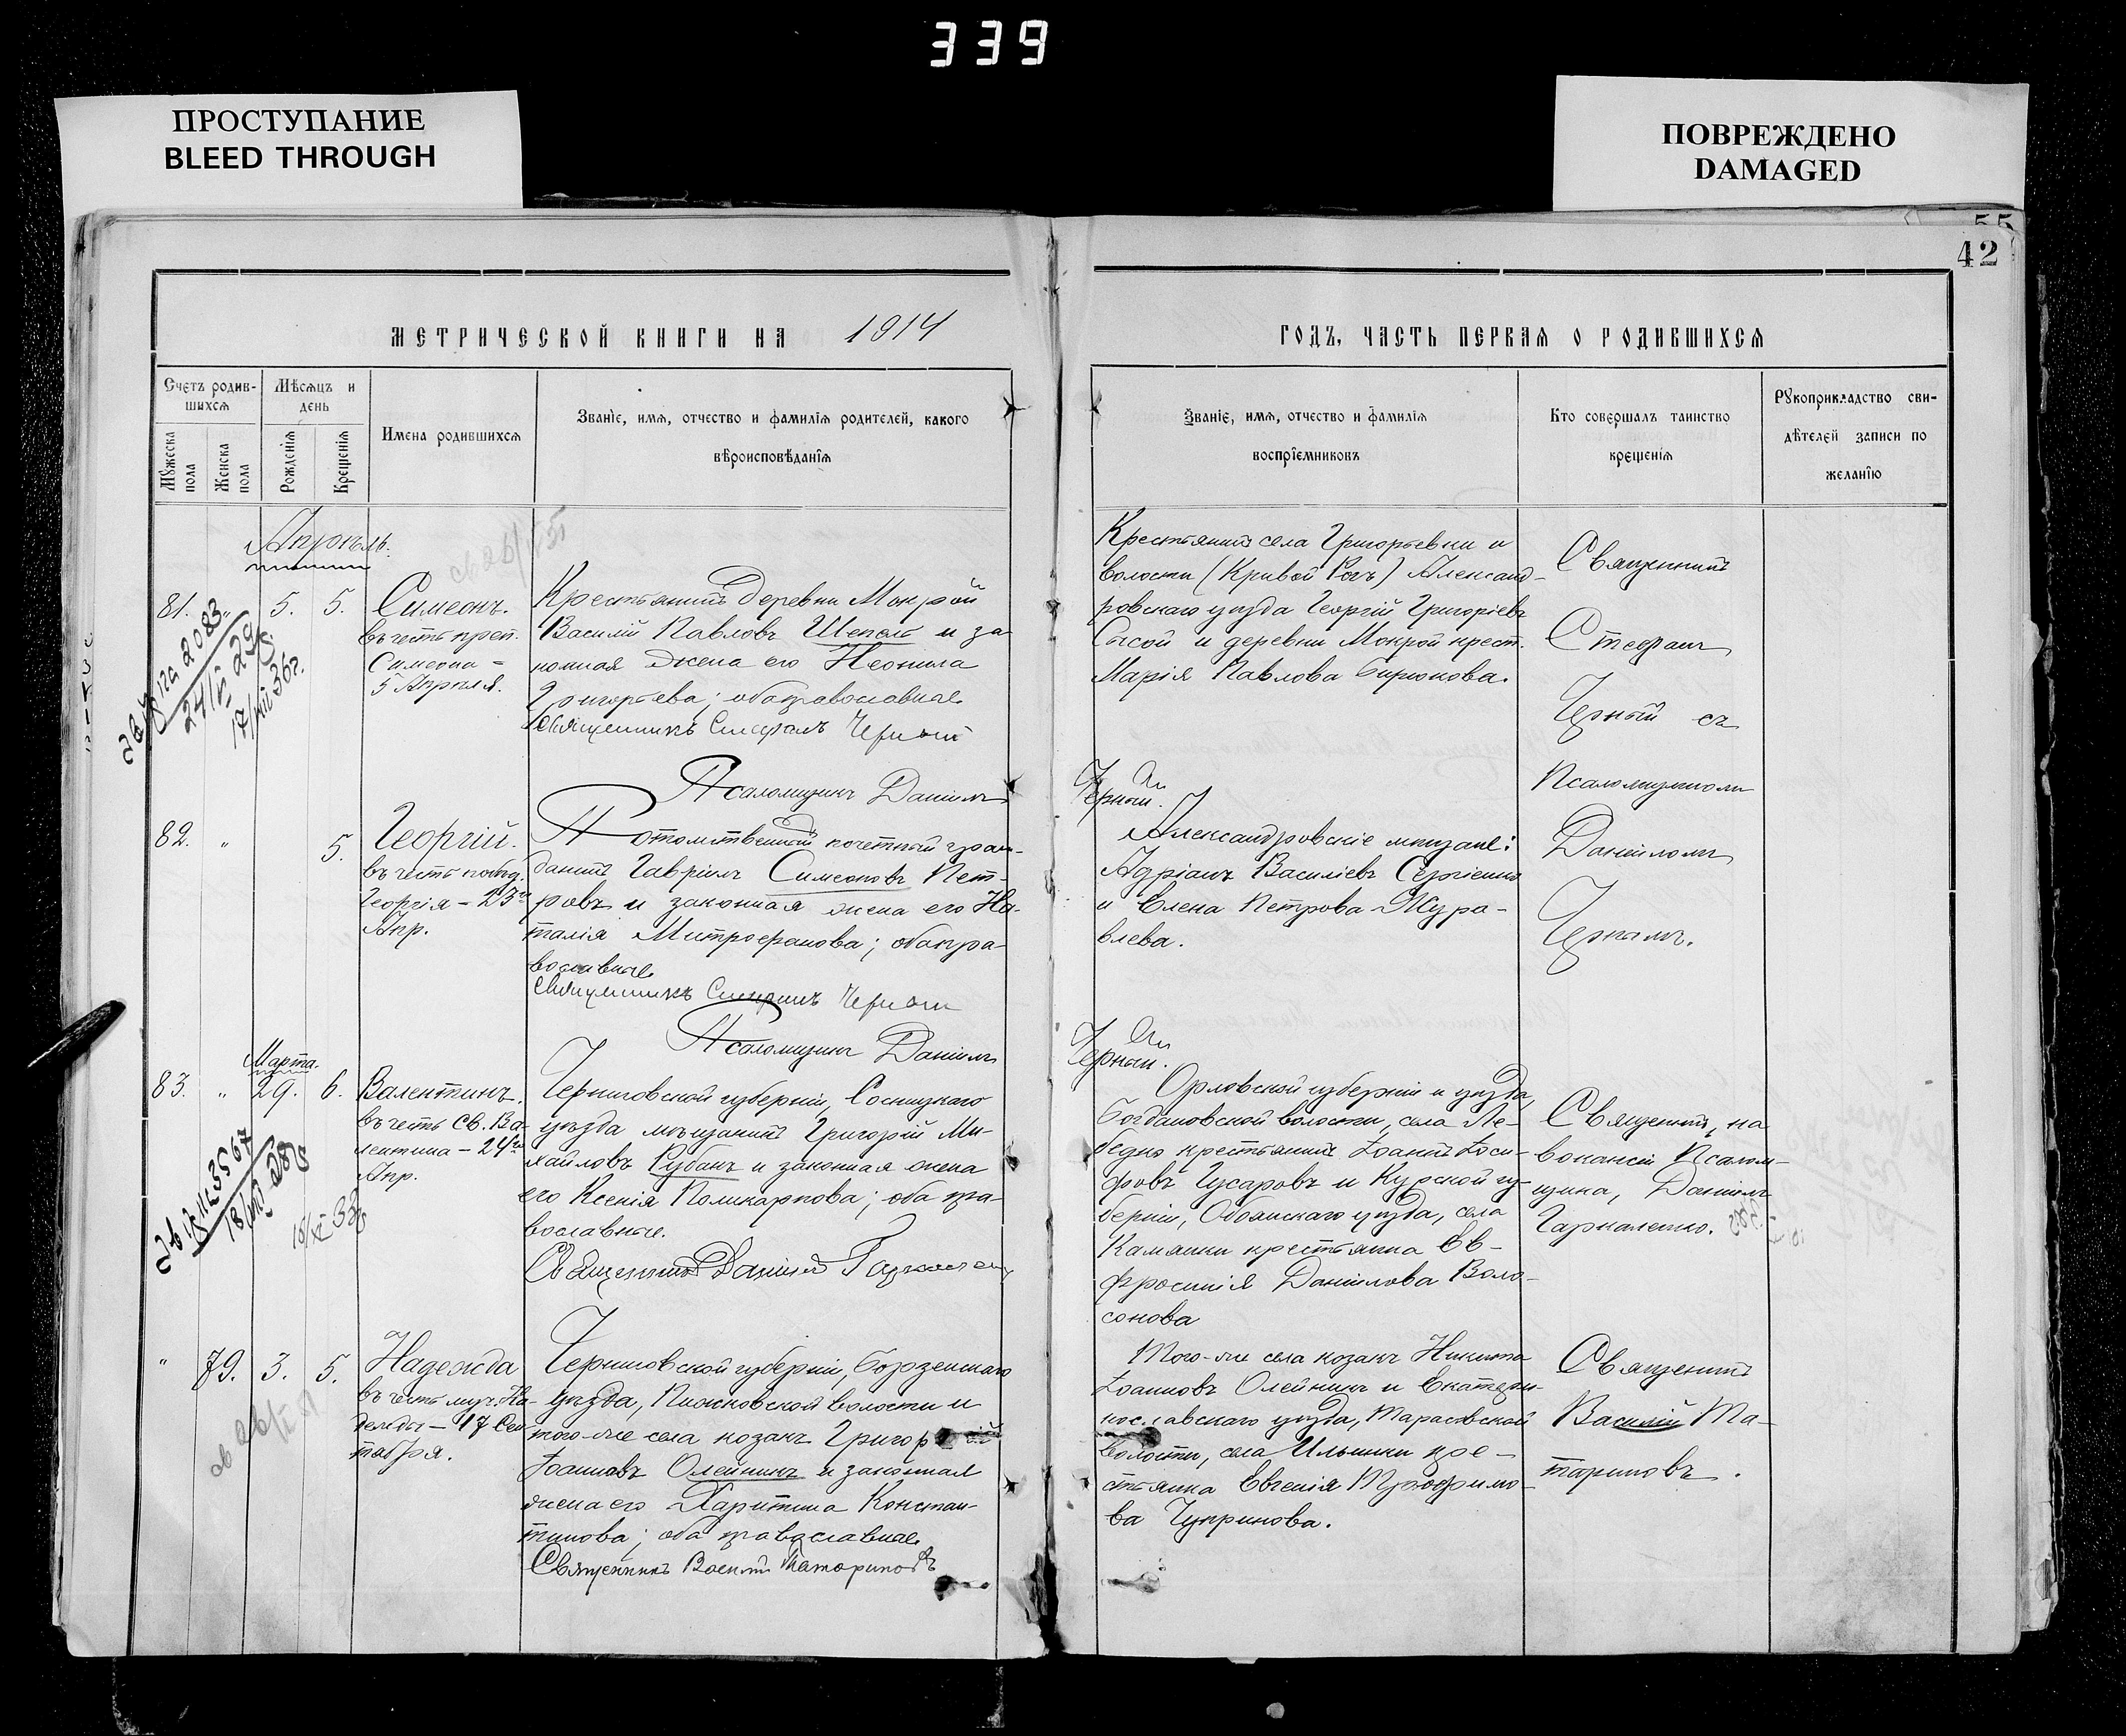 339
ПРОСТУПАНИЕ
BLEED THROUGH
ПОВРЕЖДЕНО
DAMAGED
55
42
МЕТРИЧЕСКОЙ КНИГИ НА 1914
ГОДЪ, ЧАСТЬ ПЕРВАЯ О РОДИВШИХСЯ
Счетъ родив-
шихся
Мужеска пола
Женска пола
Мѣсяцъ и
день
Рожденія
Крещенія
Имена родившихся
Званіе, имя, отчество и фамилія родителей, какого
вѣроисповѣданія
Званіе, имя, отчество и фамилія
воспріемниковъ
Кто совершалъ таинство
крещенія
Рукоприкладство сви-
дѣтелей записи по
желанію
Апрѣль.
81. " 5. 5.
Симеонъ.
въ честь преп.
Симеона -
5 Апрѣля.
Крестьянинъ деревни Мокрой
Василій Павловъ Шепель и за-
конная жена его Неонила
Григорьева; оба православные
Священникъ Стефанъ Черный
Псаломщикъ Даніилъ
Черный.
Крестьянинъ села Григорьевки и
волости (Кривой Рогъ) Александ-
ровскаго уѣзда Георгій Григоріевъ
Сысой и деревни Мокрой крест.
Марія Павлова Бирюкова.
Священникъ
Стефанъ
Черный съ
Псаломщикомъ
Даніиломъ
Чернымъ.
82. " 5.
Георгій.
въ честь побѣд.
Георгія - 23го
Апр.
Потомственный почетный граж-
данинъ Гавріилъ Симеоновъ Пет-
ровъ и законная жена его На-
талія Митрофанова; оба пра-
вославные
Священникъ Стефанъ Черный
Псаломщикъ Даніилъ
Черный.
Александровскіе мѣщане:
Адріанъ Василіевъ Сергіенко
и Елена Петрова Жура-
влева.
Марта.
83. " 29. 6.
Валентинъ.
въ честь Св. Ва-
лентина - 24го
Апр.
Черниговской губерніи, Сосницкаго
уѣзда мѣщанинъ Григорій Ми-
хайловъ Рубанъ и законная жена
его Ксенія Поликарпова; оба пра-
вославные.
Священникъ Даніилъ
Орловской губерніи и уѣзда,
Богдановской волости, села Ле-
бедко крестьянинъ Іоаннъ Іоси-
фовъ Гусаровъ и Курской гу-
берніи, Обоянскаго уѣзда, села
Камянки крестьянка Ев-
фросинія Даніилова Воло-
сонова
Священникъ, на
вакансіи Псалом-
щика, Даніилъ
" 79. 3. 5.
Надежда
въ честь муч. На-
дежды - 17 Сен-
тября.
Черниговской губерніи, Борзенскаго
уѣзда, волости и
того-же села козакъ Григорій
Іоанновъ Олейникъ и законная
жена его Харитина Констан-
тинова; оба православные
Священникъ Василій Татариновъ
Того-же села козакъ Никита
Іоанновъ Олейникъ и Екатери-
нославскаго уѣзда, Тарасовской
волости, села Ильинки кре-
стьянка Евгенія Трофимо-
ва Чупринова.
Священникъ
Василій Та-
тариновъ.